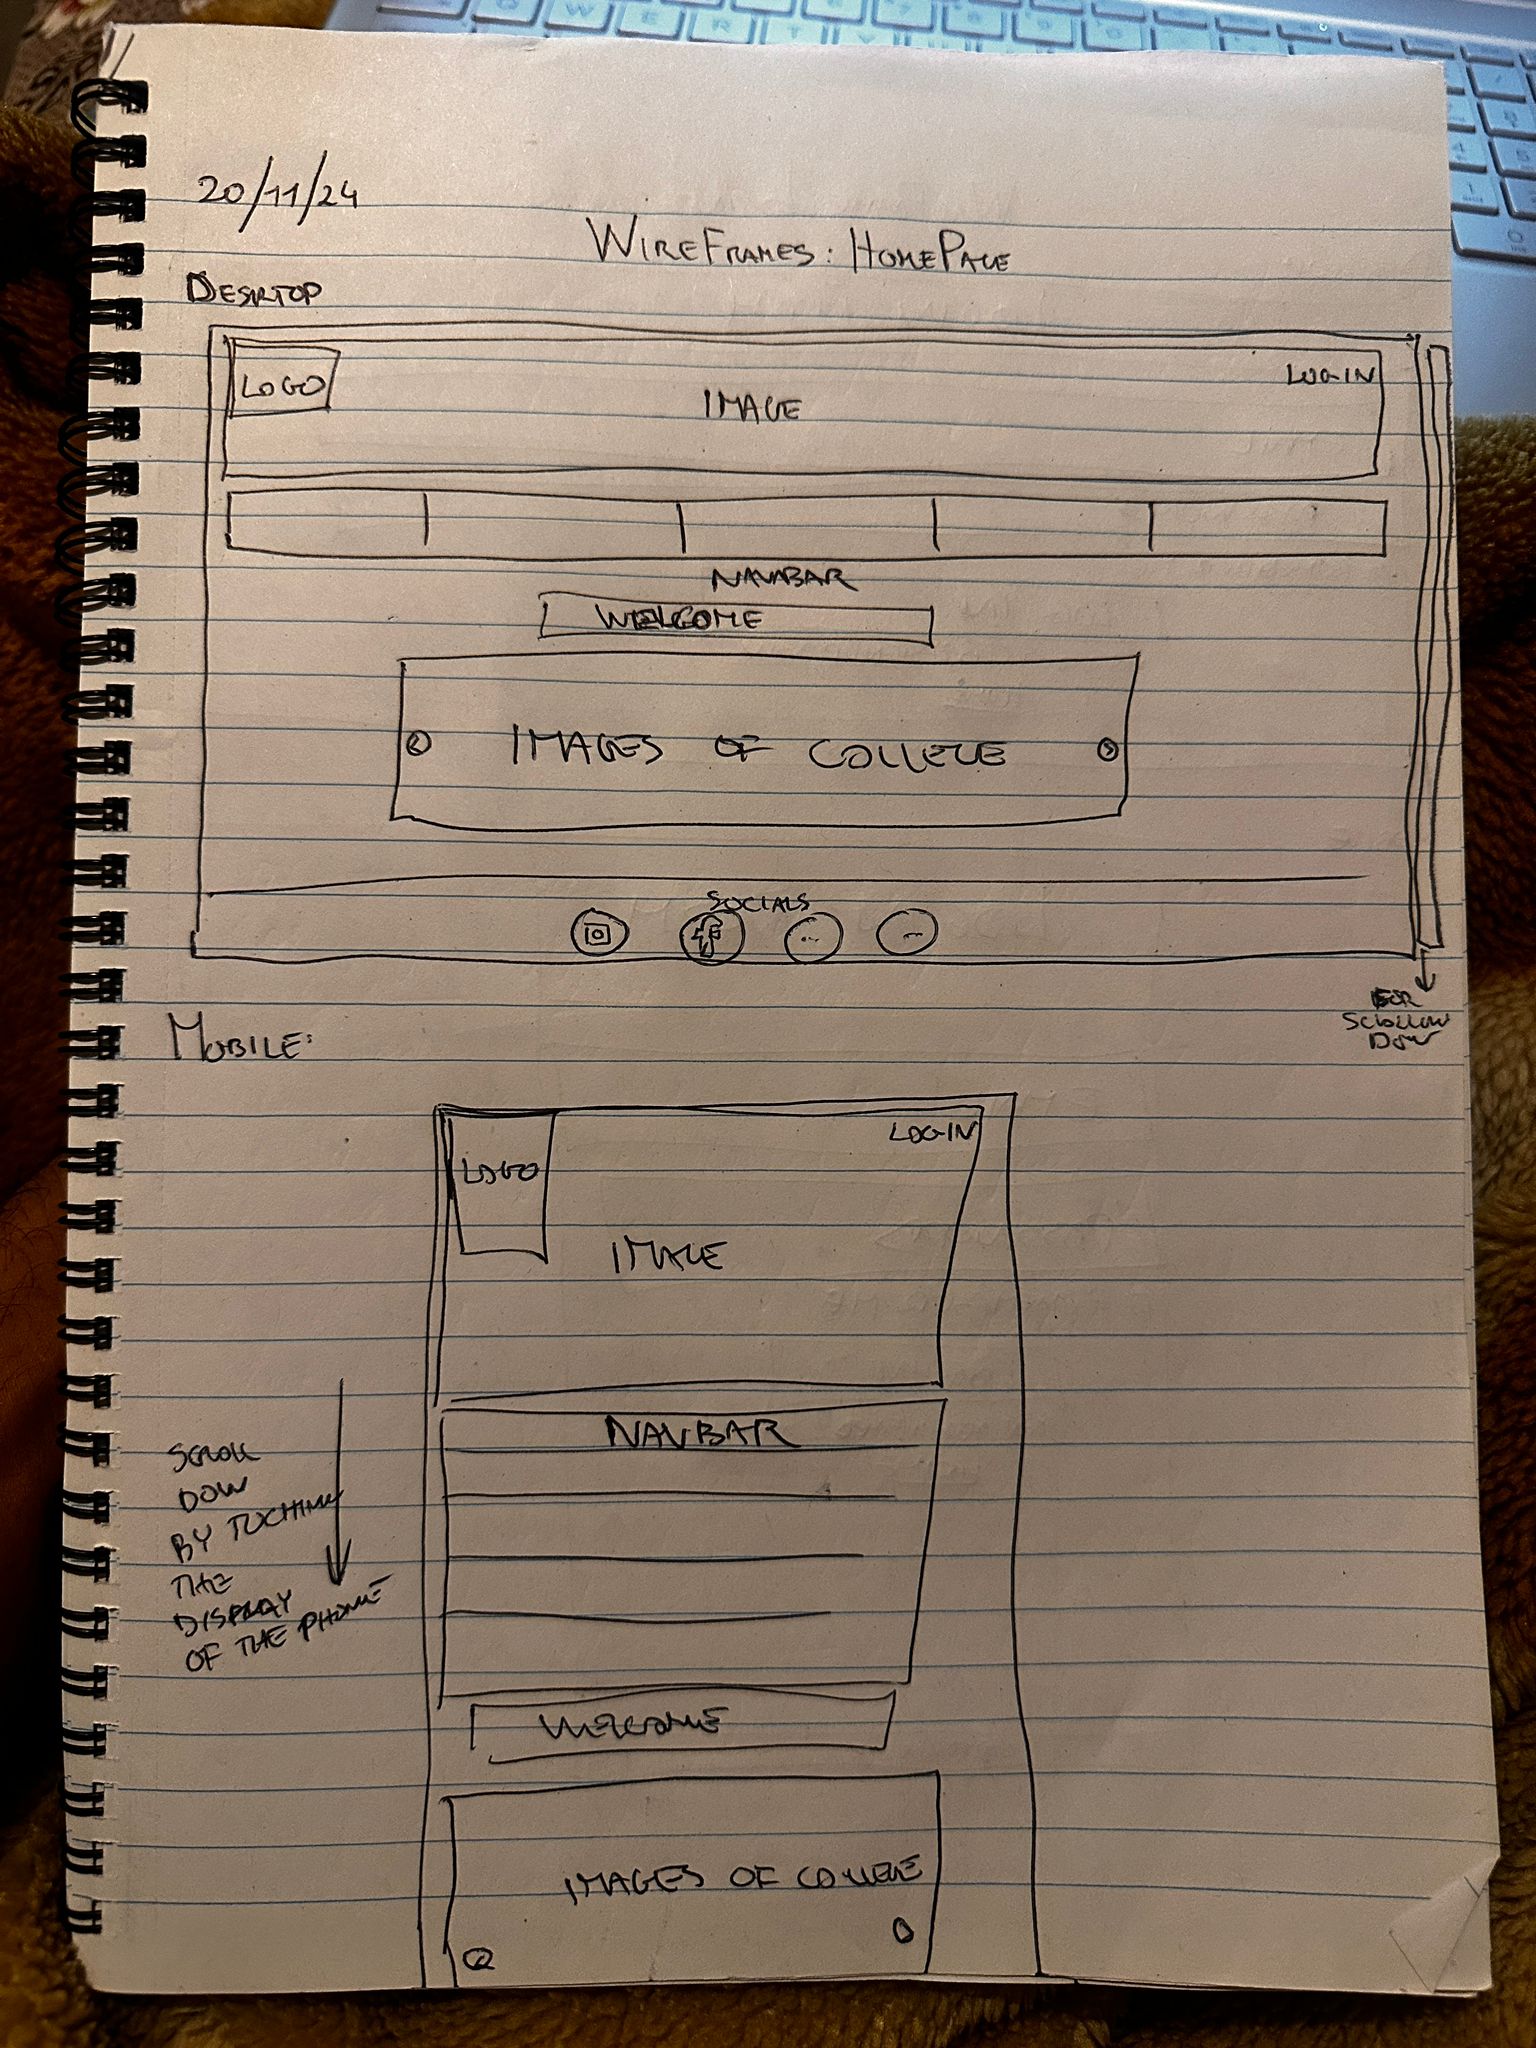 20/11/24
WIREFRAMES: HOMEPAGE
DESKTOP
LOGO
IMAGE
LOGIN
NAVBAR
WELCOME
IMAGES OF COLLEGE
SOCIALS
FOR
SCROLLING
DOWN
MOBILE:
LOGO
LOGIN
IMAGE
NAVBAR
SCROLL
DOW
BY TUCHING
THE
DISPLAY
OF THE PHONE
WELCOME
IMAGES OF COLLEGE